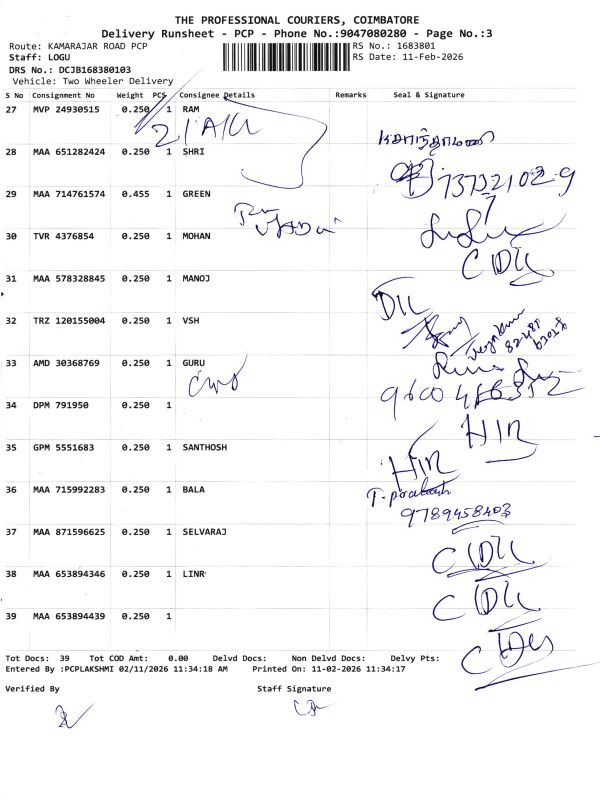 THE PROFESSIONAL COURIERS, COIMBATORE
Delivery Runsheet - PCP - Phone No.:9047080280 - Page No.:3
Route: KAMARAJAR ROAD PCP
RS No.: 1683801
Staff: LOGU
RS Date: 11-Feb-2026
DRS No.: DCJB168380103
Vehicle: Two Wheeler Delivery
S No Consignment No Weight PCS Consignee Details Remarks Seal & Signature
27 MVP 24930515 0.250 1 RAM
28 MAA 651282424 0.250 1 SHRI
29 MAA 714761574 0.455 1 GREEN
30 TVR 4376854 0.250 1 MOHAN
31 MAA 578328845 0.250 1 MANOJ
32 TRZ 120155004 0.250 1 VSH
33 AMD 30368769 0.250 1 GURU
34 DPM 791950 0.250 1
35 GPM 5551683 0.250 1 SANTHOSH
36 MAA 715992283 0.250 1 BALA
T. prakash
9789458403
37 MAA 871596625 0.250 1 SELVARAJ
38 MAA 653894346 0.250 1 LINR
39 MAA 653894439 0.250 1
Tot Docs: 39 Tot COD Amt: 0.00 Delvd Docs: Non Delvd Docs: Delvy Pts:
Entered By :PCPLAKSHMI 02/11/2026 11:34:18 AM Printed On: 11-02-2026 11:34:17
Verified By Staff Signature